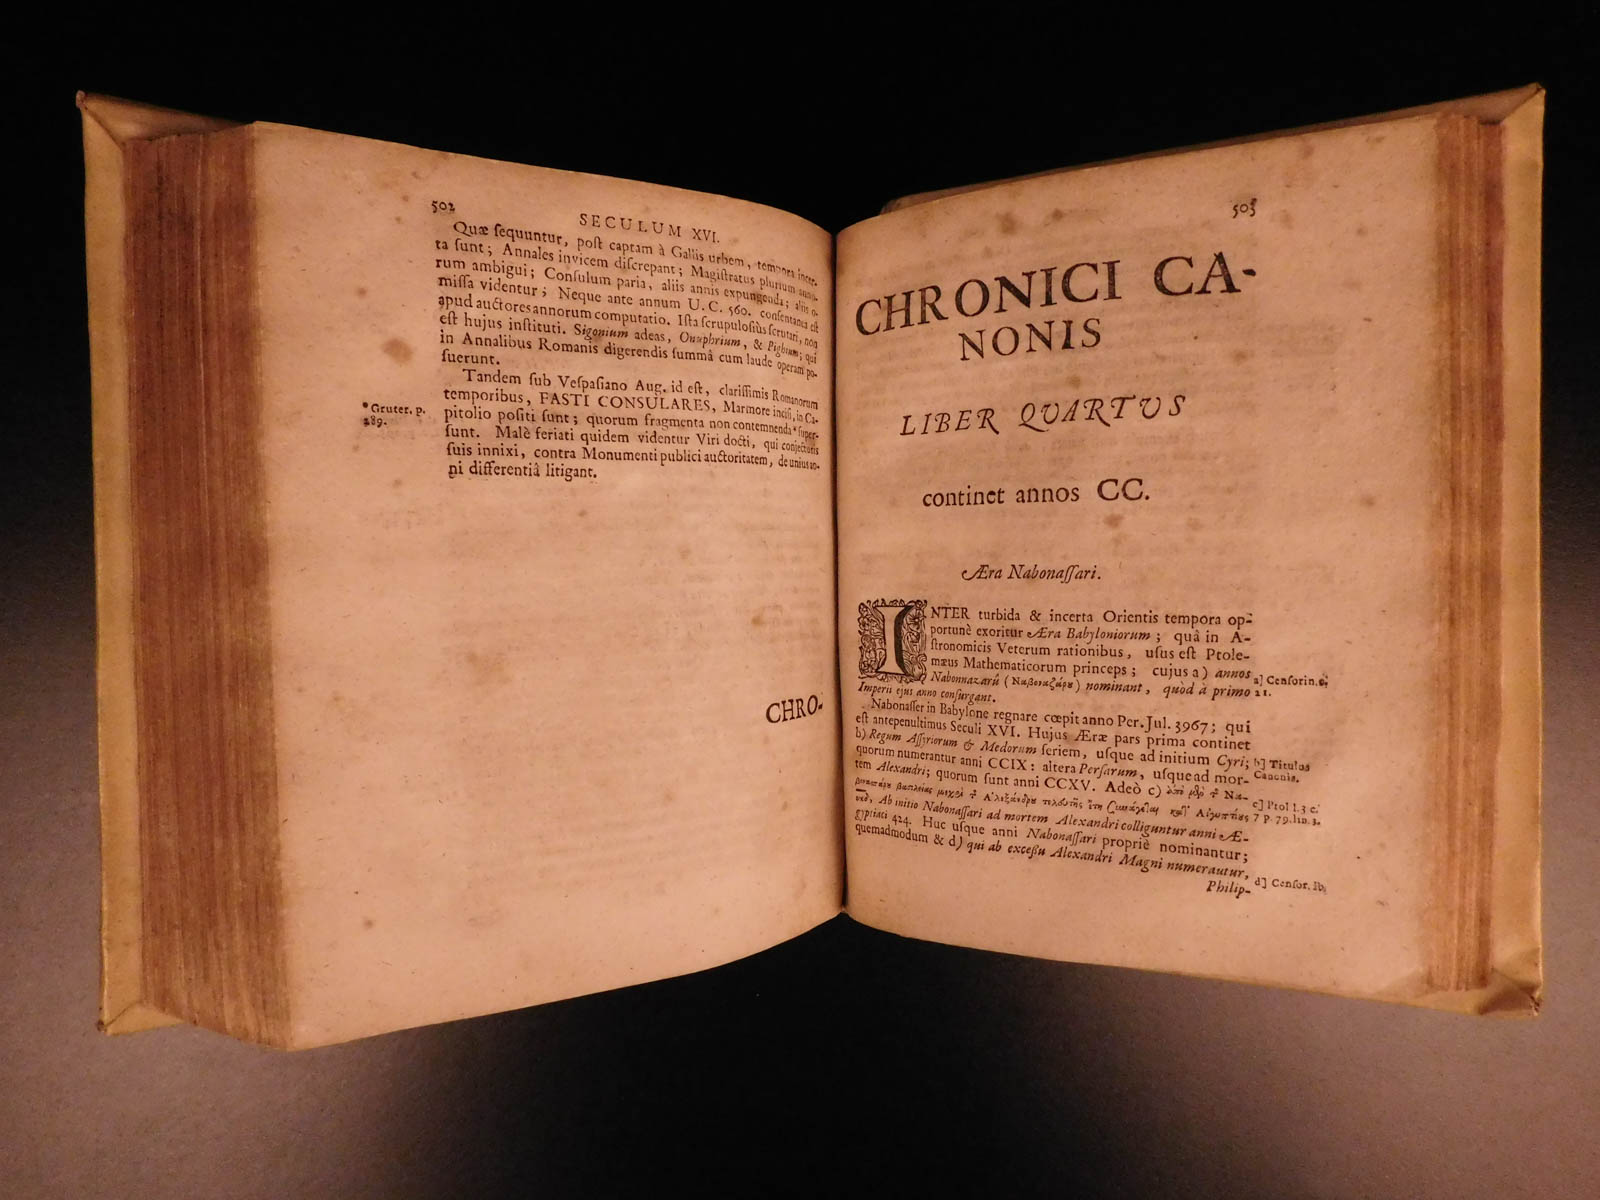 502
SECULUM XVI.
Quæ ſequuntur, poſt captam à Gallis urbem, tempora incer-
ta ſunt; Annales invicem diſcrepant; Magiſtratus plurium anno-
rum ambigui; Conſulum paria, aliis annis expungenda; aliis o-
miſſa videntur; Neque ante annum U. C. 560. conſentanea eſt
apud auctores annorum computatio. Iſta ſcrupuloſiùs ſcrutari, non
eſt hujus inſtituti. Sigonium adeas, Onuphrium, & Pighium; qui
in Annalibus Romanis digerendis ſummâ cum laude operam po-
ſuerunt.
Tandem ſub Veſpaſiano Aug. id eſt, clariſſimis Romanorum
temporibus, FASTI CONSULARES, Marmore inciſi, in Ca-
pitolio poſiti ſunt; quorum fragmenta non contemnenda * ſuper-
ſunt. Malè feriati quidem videntur Viri docti, qui conjecturis
ſuis innixi, contra Monumenti publici auctoritatem, de unius an-
ni differentiâ litigant.
* Gruter. p.
289.
CHRO-
503
CHRONICI CA-
NONIS
LIBER QVARTVS
continet annos CC.
Æra Nabonaſſari.
INTER turbida & incerta Orientis tempora op-
portunè exoritur Æra Babyloniorum; quâ in A-
ſtronomicis Veterum rationibus, uſus eſt Ptole-
mæus Mathematicorum princeps; cujus a) annos
Nabonnazarû (Ναβοναζάρȣ) nominant, quòd à primo
Imperii ejus anno conſurgant.
Nabonaſſer in Babylone regnare cœpit anno Per. Jul. 3967; qui
eſt antepenultimus Seculi XVI. Hujus Æræ pars prima continet
b) Regum Aſſyriorum & Medorum ſeriem, uſque ad initium Cyri;
quorum numerantur anni CCIX: altera Perſarum, uſque ad mor-
tem Alexandri; quorum ſunt anni CCXV. Adeò c) Να-
βονασάρȣ βασιλείας μέχρι Ἀλεξάνδρȣ τελευτῆς ἔτη Αἰγυπτίȣς
Ab initio Nabonaſſari ad mortem Alexandri colliguntur anni Æ-
gyptiaci 424. Huc uſque anni Nabonaſſari propriè nominantur;
quemadmodum & d) qui ab exceßu Alexandri Magni numerantur,
Philip-
a] Cenſorin. c.
21.
b] Titulus
Canonis.
c] Ptol l. 3 c.
7 p. 79. lin. 3.
d] Cenſor. Ib.